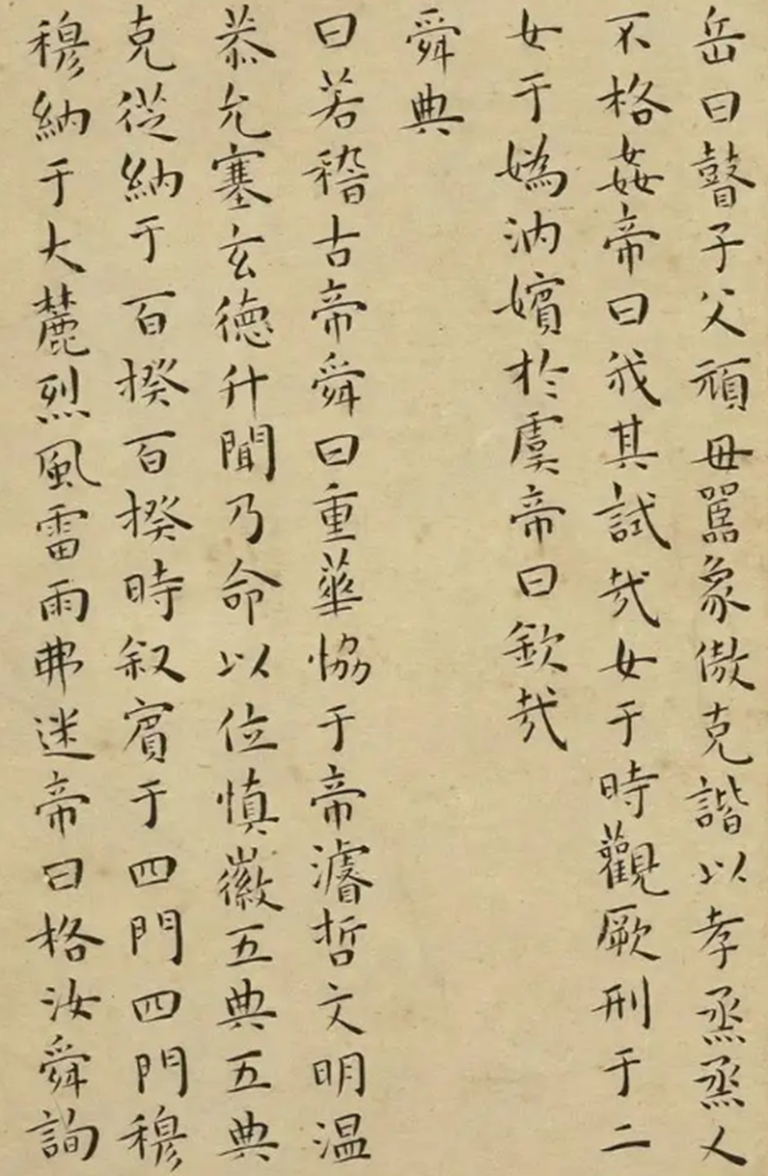 岳曰瞽子父頑母嚚象傲克諧以孝烝烝乂
不格姦帝曰我其試哉女于時觀厥刑于二
女于嬀汭嬪於虞帝曰欽哉
舜典
曰若稽古帝舜曰重華恊于帝濬哲文明温
恭允塞玄德升聞乃命以位慎徽五典五典
克從納于百揆百揆時叙賓于四門四門穆
穆納于大麓烈風雷雨弗迷帝曰格汝舜詢